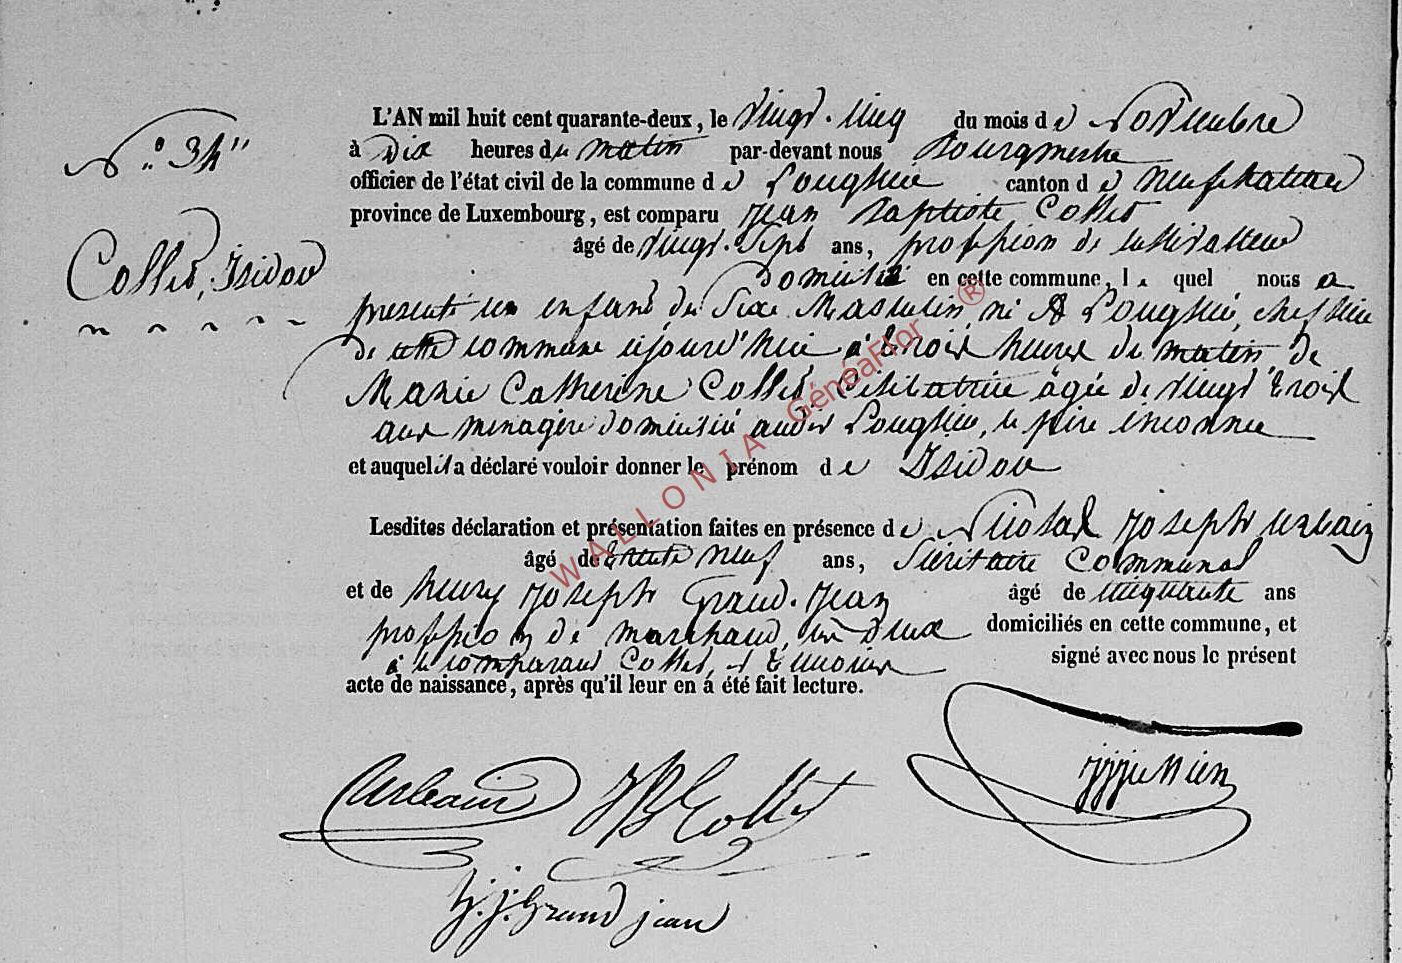 N.° 34"
Collet, Isidore
L'AN mil huit cent quarante-deux, le vingt-cinq du mois de Novembre
à Dix heures du matin par-devant nous Bourgmestre
officier de l'état civil de la commune de Longlier canton de Neufchateau
province de Luxembourg, est comparu Jean Baptiste Collet
âgé de vingt-sept ans, profession de cultivateur
Domicilié en cette commune, lequel nous a
présenté un enfant du Sexe Masculin, né à Longlier, chef lieu
de cette commune aujourd'hui à trois heures du matin, de
Marie Catherine Collet, Célibataire âgée de vingt trois
ans ménagère domiciliée audit Longlier, le père inconnu
et auquel il a déclaré vouloir donner le prénom de Isidore
Lesdites déclaration et présentation faites en présence de Nicolas Joseph Urbain
âgé de trente neuf ans, Sécrétaire Communal
et de henry Joseph Grand-Jean âgé de cinquante ans
profession de marchand, domiciliés en cette commune, et
le comparant Collet, et témoins signé avec nous le présent
acte de naissance, après qu'il leur en á été fait lecture.
Urbain JB Collet
h.j. Grand jean
WALLONIA GénéaFlor ®